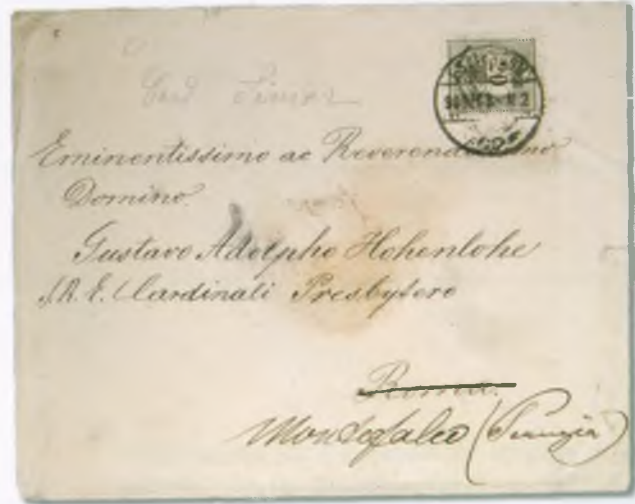 Card Simor
Eminentissimo ac Reverendissimo
Domino
Gustavo Adolpho Hohenlohe
S. R. E. Cardinali Presbytero
Roma.
Montefalco (Perugia)